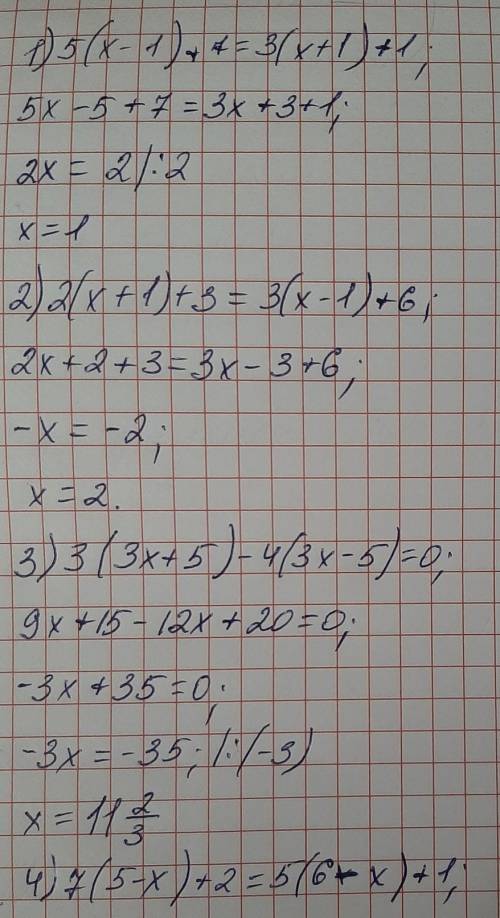 1) 5(x-1)+7=3(x+1)+1;
5x-5+7=3x+3+1;
2x=2 |:2
x=1
2) 2(x+1)+3=3(x-1)+6;
2x+2+3=3x-3+6;
-x=-2;
x=2.
3) 3(3x+5)-4(3x-5)=0;
9x+15-12x+20=0;
-3x+35=0;
-3x=-35; |:(-3)
x=11 2/3
4) 7(5-x)+2=5(6-x)+1;